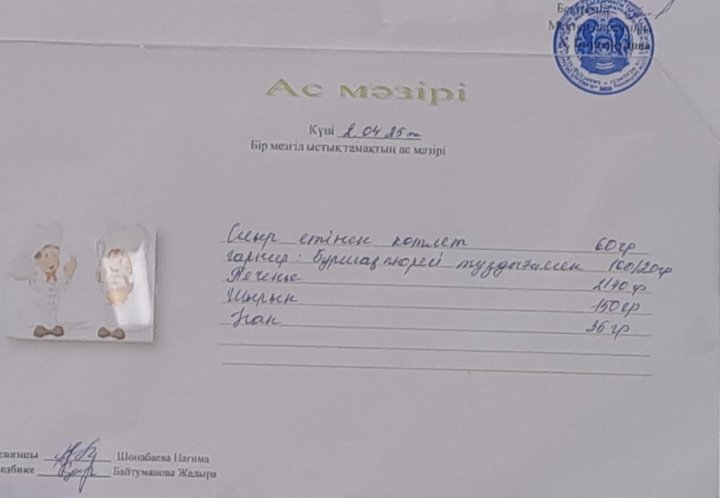 Ас мәзірі
Күні 2 04 25
Бір мезгіл ыстық тамақтың ас мәзірі
Сиыр етінен котлет 60гр
гарнир: бұршақ пюрей тұздығымен 100/20гр
Печенье
Шырын 150гр
Нан 35 гр
Шонабаева Нагима
Байтуманова Жадыра